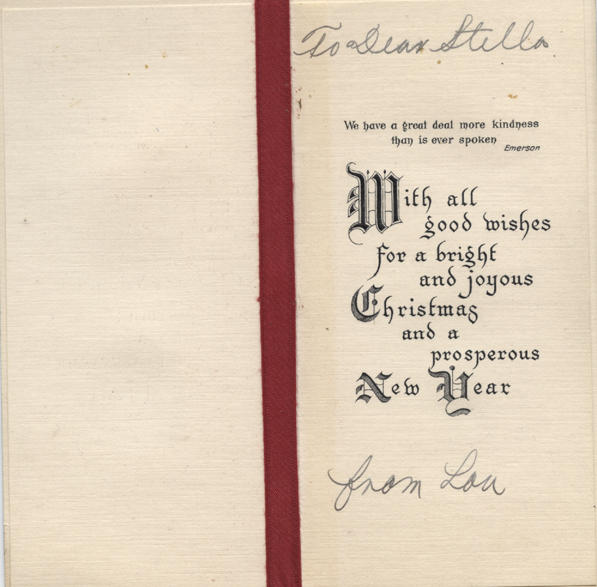 To Dear Stella
We have a great deal more kindness
than is ever spoken
Emerson
With all
good wishes
for a bright
and joyous
Christmas
and a
prosperous
New Year
from Lou